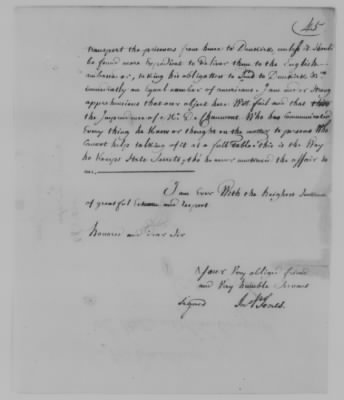 45
transport the prisoners from hence to Dunkirk, unless it should
be found more Expedient to deliver them to the English
ambassador, taking his obligation to Send to Dunkirk &ca
immediately an equal number of americans. I am under strong
apprehensions that our object here Will fail and that thro
the Imprudence of Mr. De Chaumont Who has Communicated
Every thing he Knew or thought on the matter to persons Who
Cannot help talking of it at a full Table this is the Way
he Keeps State Secrets, tho he never mentioned the affair to
me.
I am Ever With the highest Sentiments
of greatful Esteem and respect
Honored and dear Sir
Your Very obliged friend
and Very humble Servant
Signed Jno P Jones.